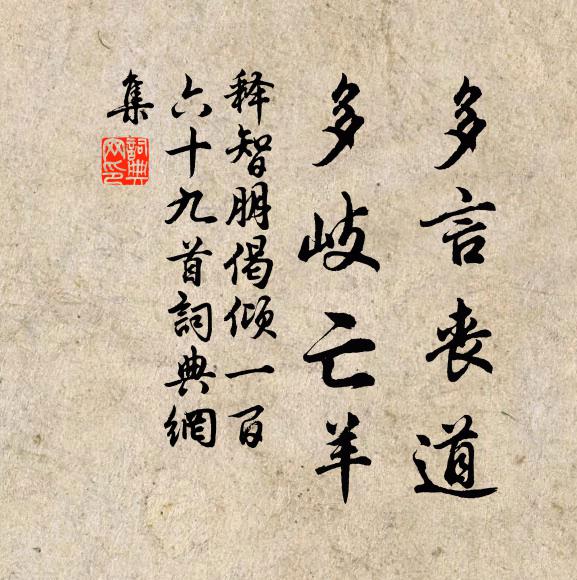 多言丧道
多岐亡羊
释智朋偈倾一百
六十九首詞典網
集
詞典
网印